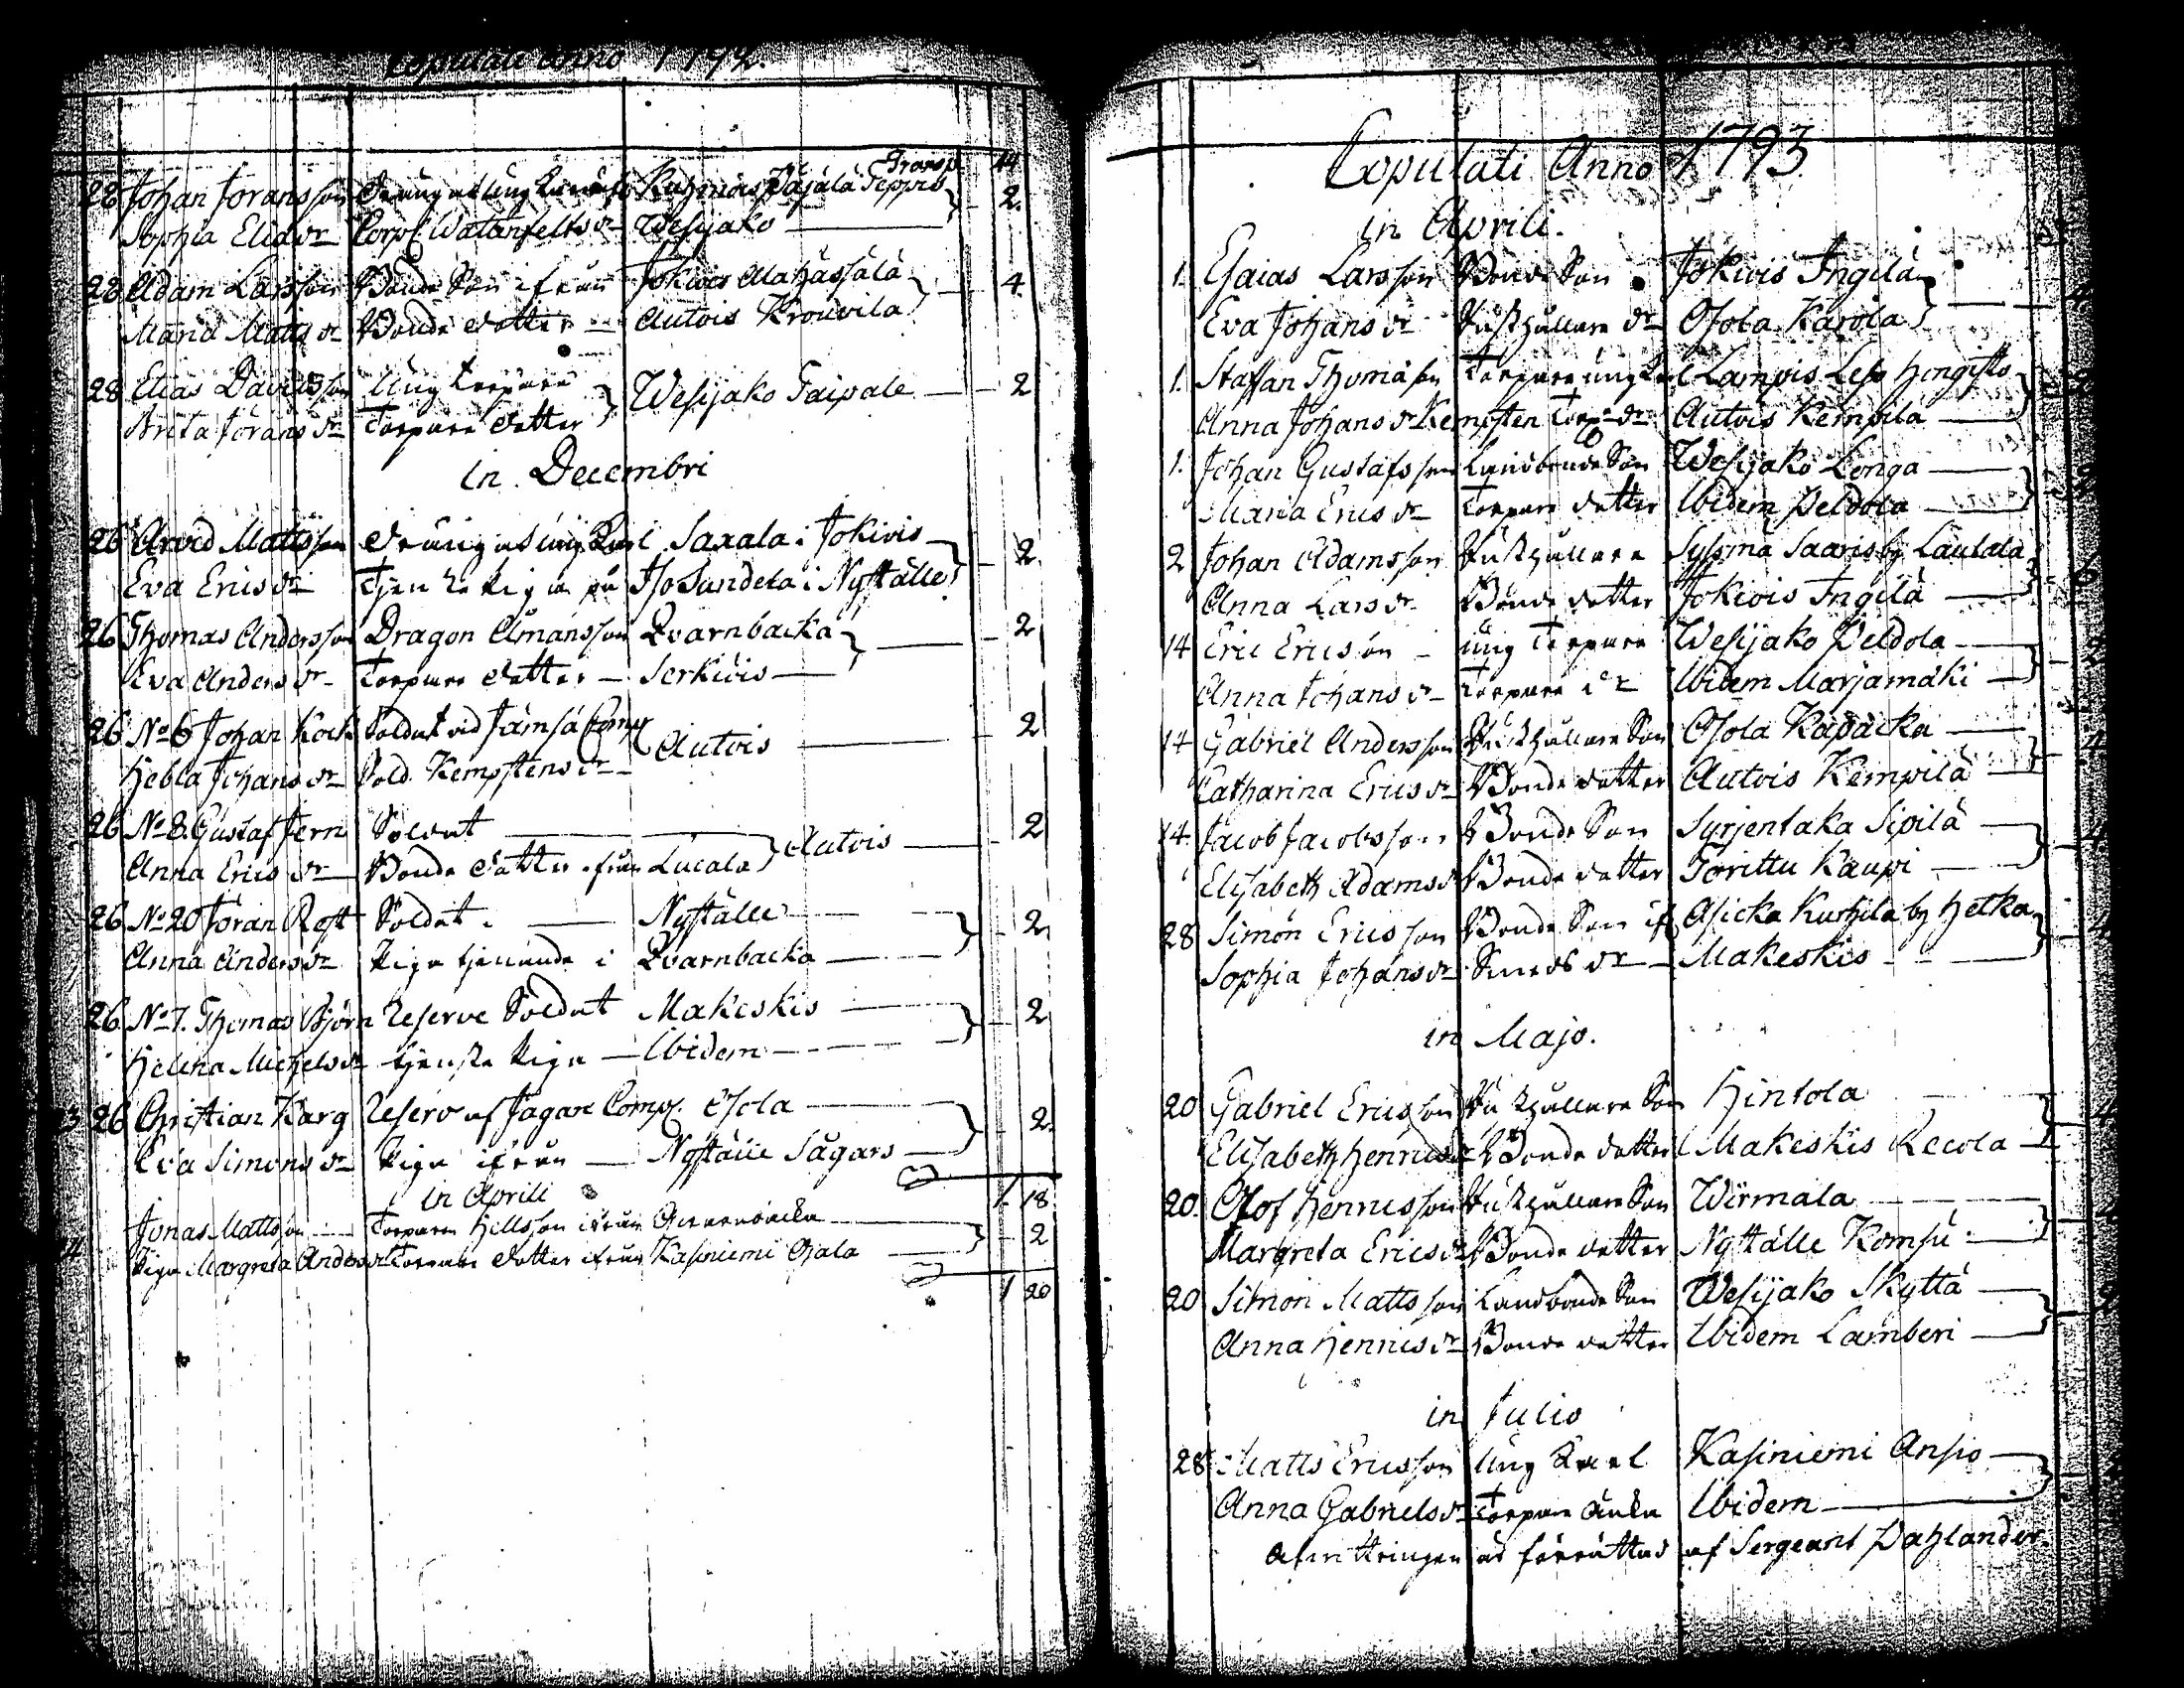 Copulati Anno 1792.
Transp. 44
28 Johan Jöransson Dräng ut ung Karl Kuhmois Päjälä Seppäs 2.
Sophia Eliæ dr Corpl Watanfelts dr Wesijako
28 Adam Larsson Bonde Son ifrån Jokiois Alahässälä 4.
Maria Matts dr Bonde dotter Autois Krouvila
28 Elias Davidsson Ung torpare Wesijako Taipale 2
Brita Jörans dr Torpare dotter
in Decembri
26 Arvid Mattsson dräng ut ung Karl Saxala i Jokiois 2.
Eva Erics dr Tjenste Piga på Iso Sundela i Nyställe
26 Thomas Andersson Dragon Åmansson Qvarnbacka 2
Eva Anders dr Torpare dotter Serkiois
26 No 6 Johan Kock Soldat vid Jämsä Comp Autois 2
Hebla Johans dr Sold. Kempstens dr
26 No 8. Gustaf Jern Soldat Autois 2
Anna Erics dr Bonde dotter ifrån Lucala
26 No 20 Jöran Rost Soldat Nyställe 2
Anna Anders dr Piga tjenande i Qvarnbacka
26 No 7. Thomas Björn Reserve Soldat Makeskis 2
Helena Michels dr tjenste Piga Ibidem
26 Christian Karg Reserv af Jägare Comp. Osola 2.
Eva Simons dr Piga ifrån Nyställe Sågars
1. 18
in Aprili
Jonas Mattson Torparen Hellsson ifrån Qvarnbacka 2
Piga Margreta Anders dr Torpare dotter ifrån Kasiniemi Ojala
1 20
Copulati Anno 1793
in Aprili.
1. Esaias Larsson Bonde Son Jokiois Ingilä
Eva Johans dr Rusthållare dr Osola Karola
1. Staffan Thomason Torpare ung Karl Lampis Leso Hengisto
Anna Johans dr Kempsten Torp. dr Autois Kempilä
1. Johan Gustafsson Landbonde Son Wesijako Longa
Maria Erics dr Torpare dotter Ibidem Peldola
2 Johan Adamsson Rusthållare Sysmä Saarisby Laulala
Anna Lars dr Bonde dotter Jokiois Ingilä
14 Eric Ericsson ung Torpare Wesijako Peldola
Anna Johans dr Torpare dr Ibidem Marjamäki
14 Gabriel Andersson Rusthållare Son Osola Kapacka
Catharina Erics dr Bonde dotter Autois Kempilä
14. Jacob Jacobsson Bonde Son Syrjentaka Sipilä
Elisabeth Adams dr Bonde dotter Torittu Kaupi
28 Simon Ericsson Bonde Son if. Asicka Kurhila by Helka
Sophia Johans dr Smeds dr Makeskis
in Majo.
20 Gabriel Ericsson Rusthållare Son Hintola
Elisabeth Henrics dr Bonde dotter Makeskis Recola
20. Olof Henricsson Rusthållare Son Wirmala
Margreta Erics dr Bonde dotter Nyställe Komsu
20 Simon Mattsson Landbonde Son Wesijako Skyttä
Anna Henrics dr Bonde dotter Ibidem Lamberi
in Julio
28 Matts Ericsson Ung Karl Kasiniemi Ansio
Anna Gabriels dr Torpare Änka Ibidem
afvittringen är förrättad af Sergeant Dahlander.